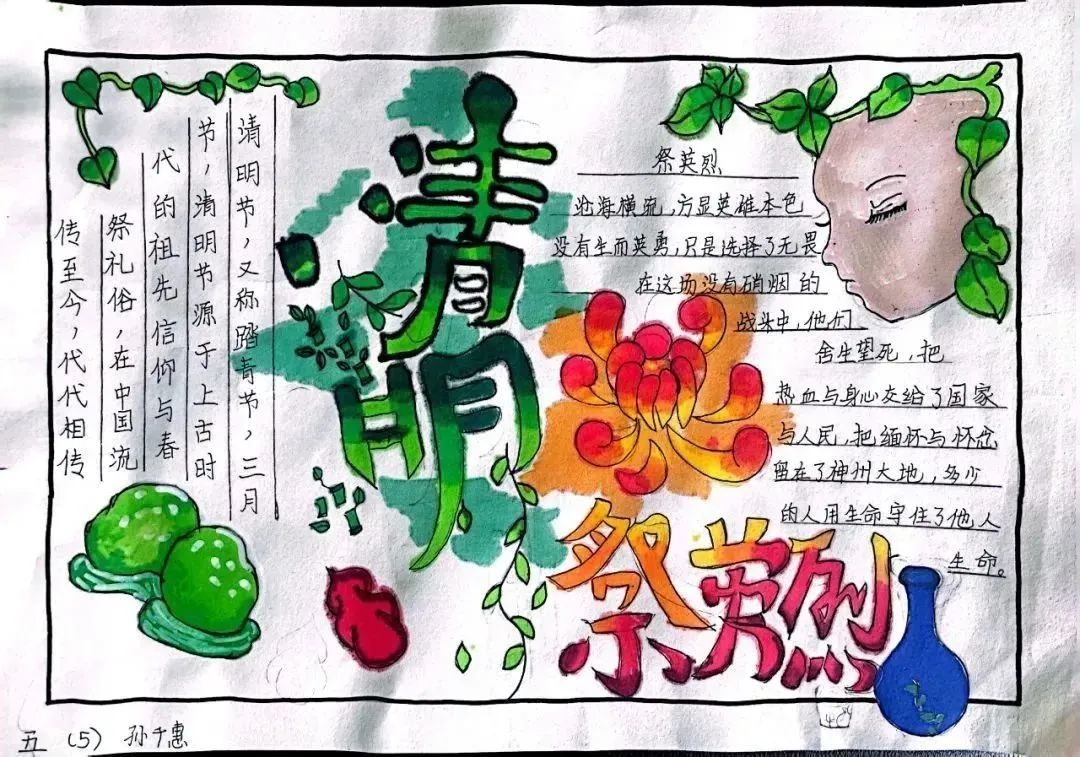 清明
清明节，又称踏青节，三月
节，清明节源于上古时
代的祖先信仰与春
祭礼俗，在中国流
传至今，代代相传
祭英烈
沧海横流，方显英雄本色
没有生而英勇，只是选择了无畏
在这场没有硝烟的
战斗中，他们
舍生望死，把
热血与身心交给了国家
与人民，把缅怀与怀念
留在了神州大地，多少
的人用生命守住了他人
生命。
祭英烈
五（5）孙千惠